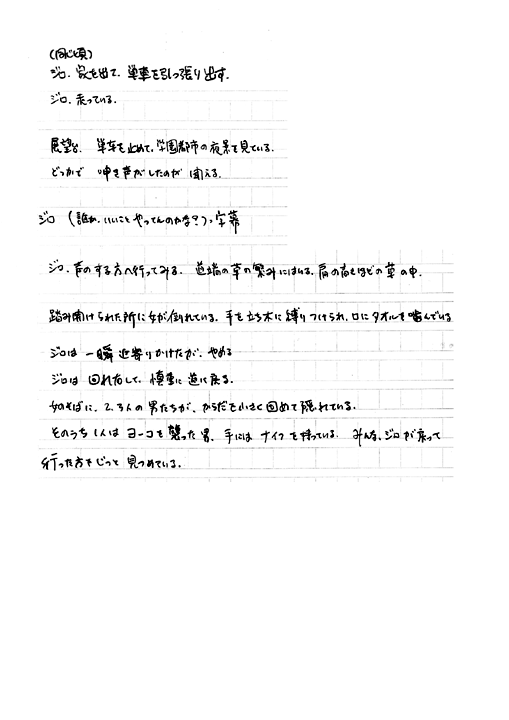 (同じ頃)
ジロ、家を出て、単車を引っ張り出す。
ジロ、走っている。
展望台、単車を止めて、学園都市の夜景を見ている。
どっかで 呻き声がしたのが 聞える。
ジロ (誰か、いいこと やってんのかな?)、字幕
ジロ、声のする方へ行ってみる。道端の草の繁みにはいる。肩の高さほどの草の中。
踏み開けられた所に女が倒れている。手を立ち木に縛りつけられ、口にタオルを噛んでいる
ジロは 一瞬 近寄りかけたが、やめる
ジロは 回れ右して、慎重に 道に戻る。
女のそばに、2、3人の男たちが、からだを小さく固めて隠れている。
そのうち1人は ヨーコを襲った男、手には ナイフ を持っている。 みんな、ジロが 戻って
行った方をじっと 見つめている。